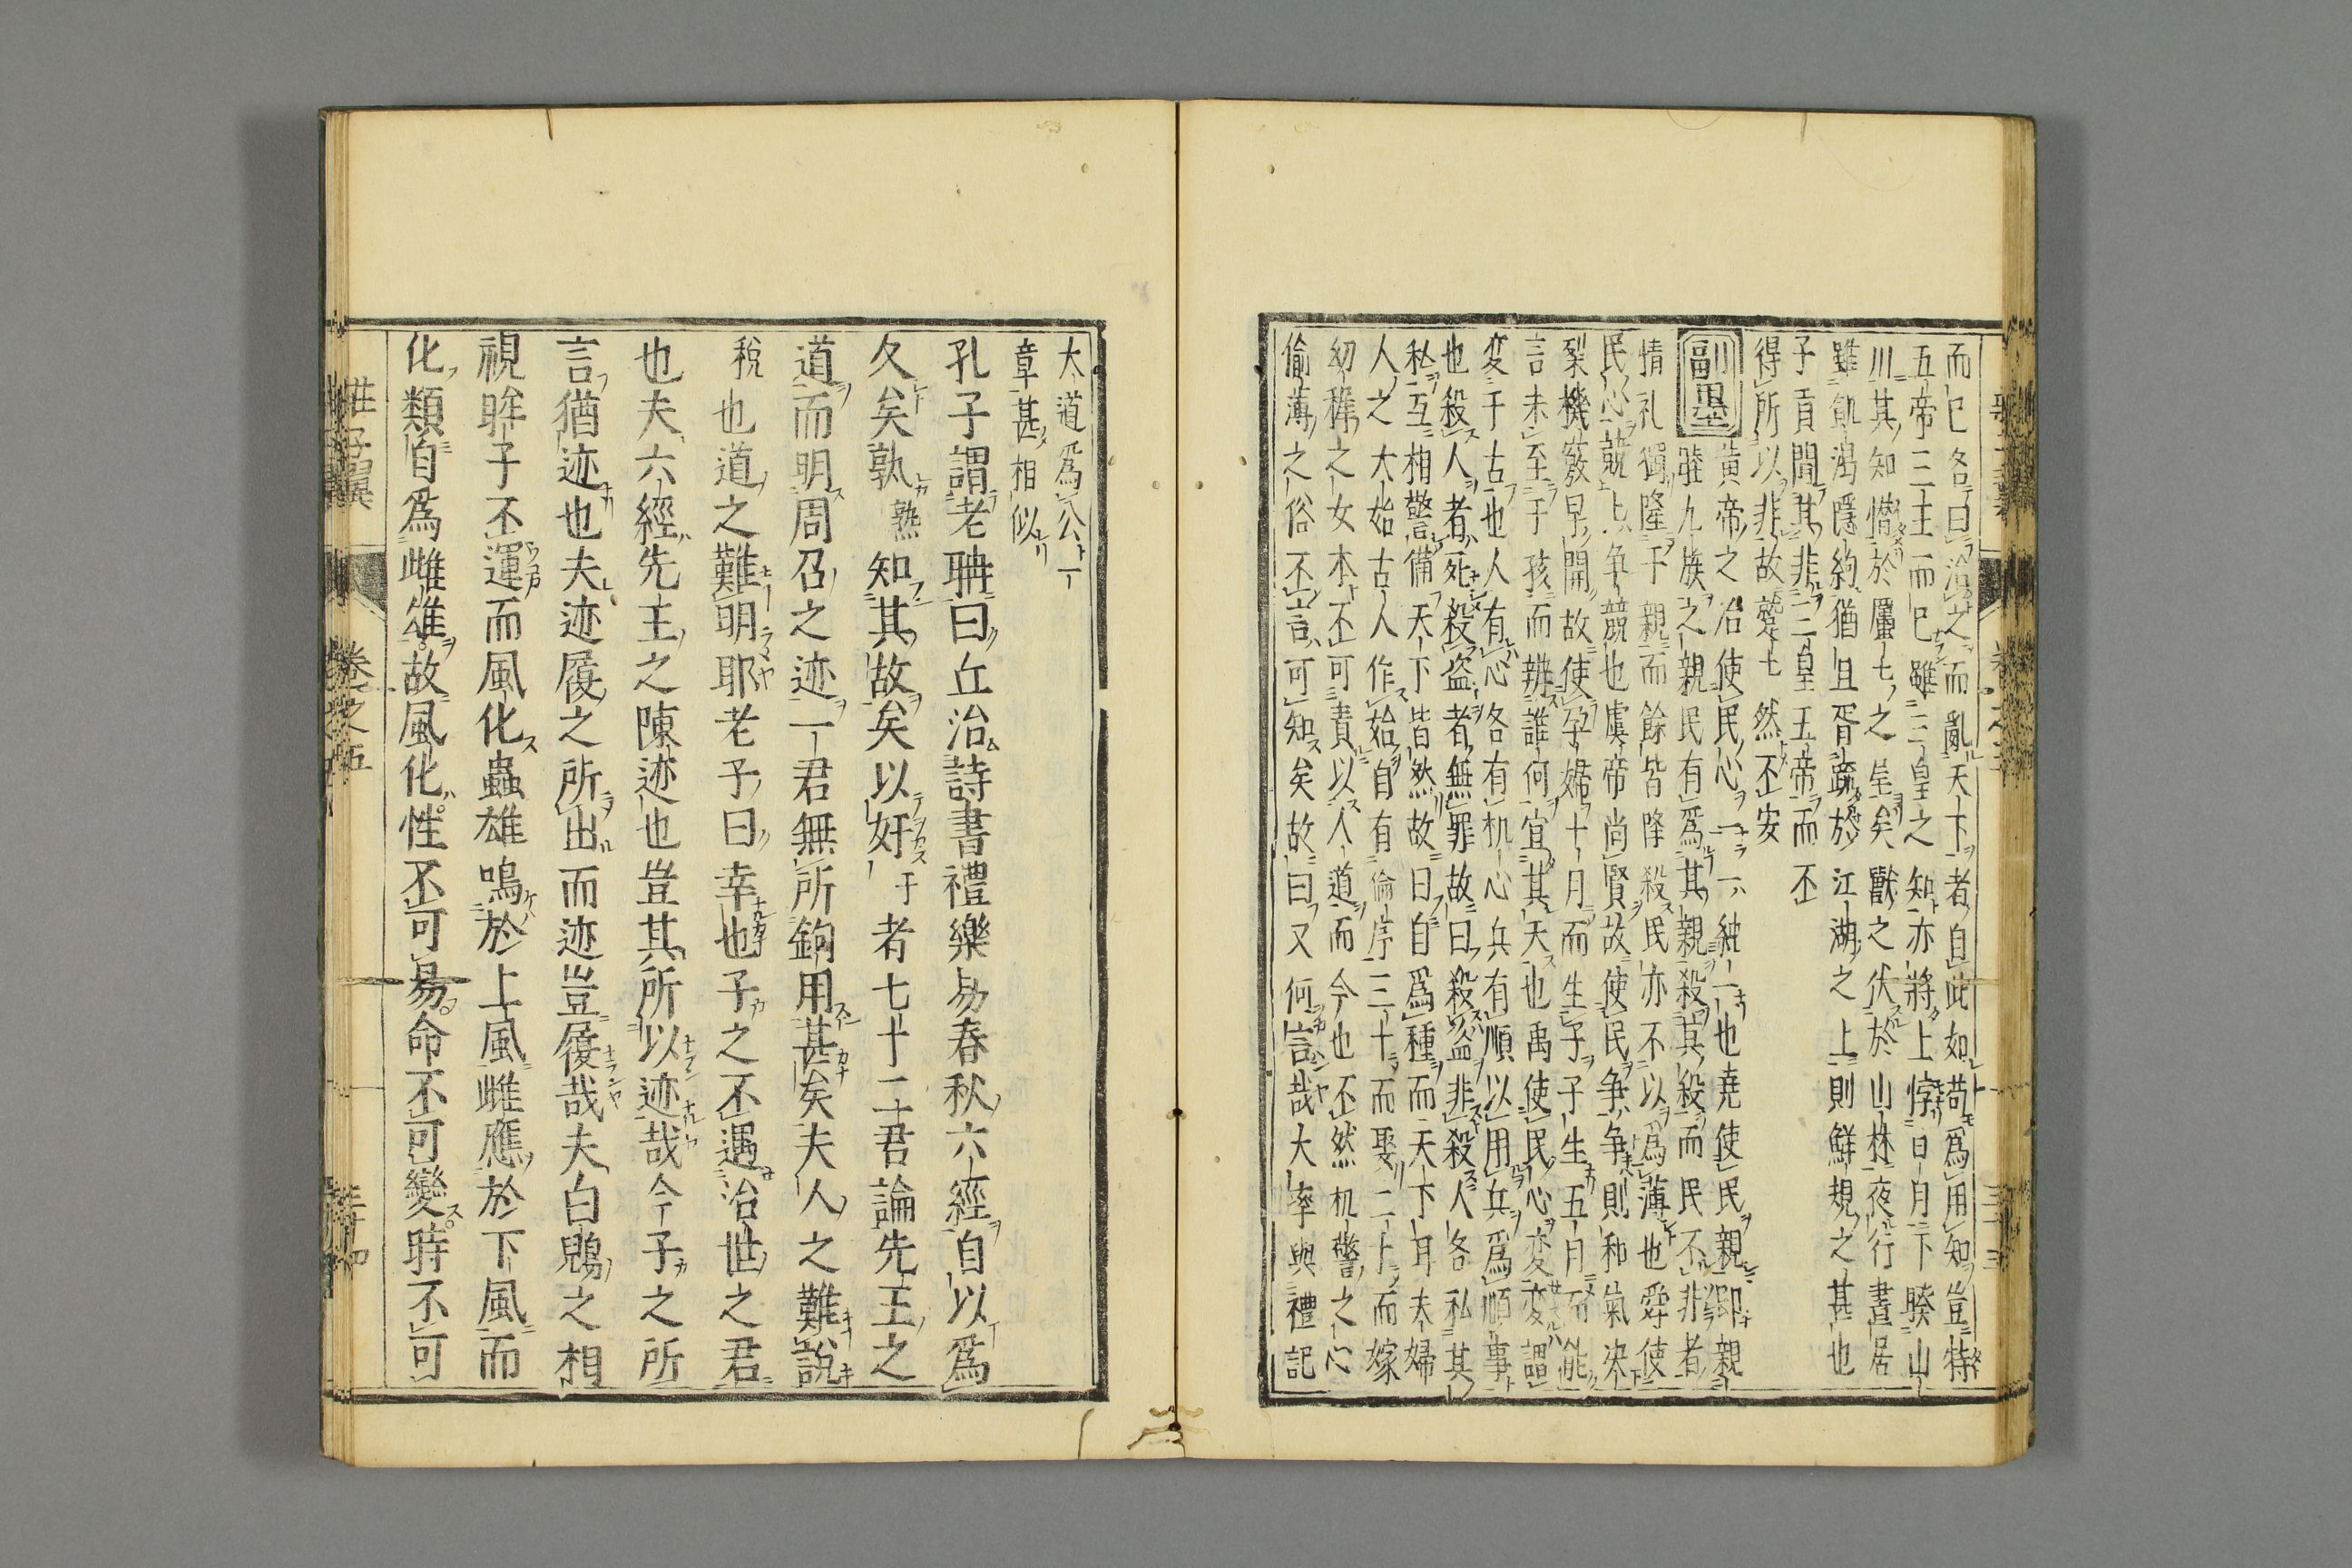 而已各曰治之而亂天下者自此如苟爲用知豈特
五帝三王而已雖三皇之知亦將上悖日月下睽山
川其知憯於七之矣獸之伏於山林夜行晝居
雖飢渴隱約猶且胥疏於江湖之上則鮮規之甚也
子貢聞其非三皇五帝而不
得所以非故蹵七然不安
副墨 黄帝之治使民心一一純一也堯使民親卽親
睦九族之親民有爲其親殺其殺而民不非者
情礼獨隆于親而餘皆降殺民亦不以爲薄也舜使
民心競上爭競也虞帝尚賢故使民爭爭則和氣决
裂機竅早開故使孕婦十月而生子子生五月而能
言未至于孩而辨誰何宜其夭也禹使民心変変謂
変于古也人有心各有机心兵有順以用兵爲順事
也殺人者死殺盗者無罪故曰殺盗非殺人各私其
私互相警備天下皆然故曰自爲種而天下耳夫婦
人之大始古人作始自有倫序三十而娶二十而嫁
幼稺之女本不可責以人道而今也不然机警之心
偷薄之俗不言可知矣故曰又何言哉大率與禮記
大道爲公一
章甚相似
孔子謂老聃曰丘治詩書禮樂易春秋六經自以爲
久矣孰熟知其故矣以奸干者七十二君論先王之
道而明周召之迹一君無所鉤用甚矣夫人之難說
稅也道之難明耶老子曰幸也子之不遇治世之君
也夫六經先王之陳迹也豈其所以迹哉今子之所
言猶迹也夫迹履之所出而迹豈履哉夫白鶂之相
視眸子不運而風化蟲雄鳴於上風雌應於下風而
化類自爲雌雄故風化性不可易命不可變時不可
莊子翼 卷之五 三十四